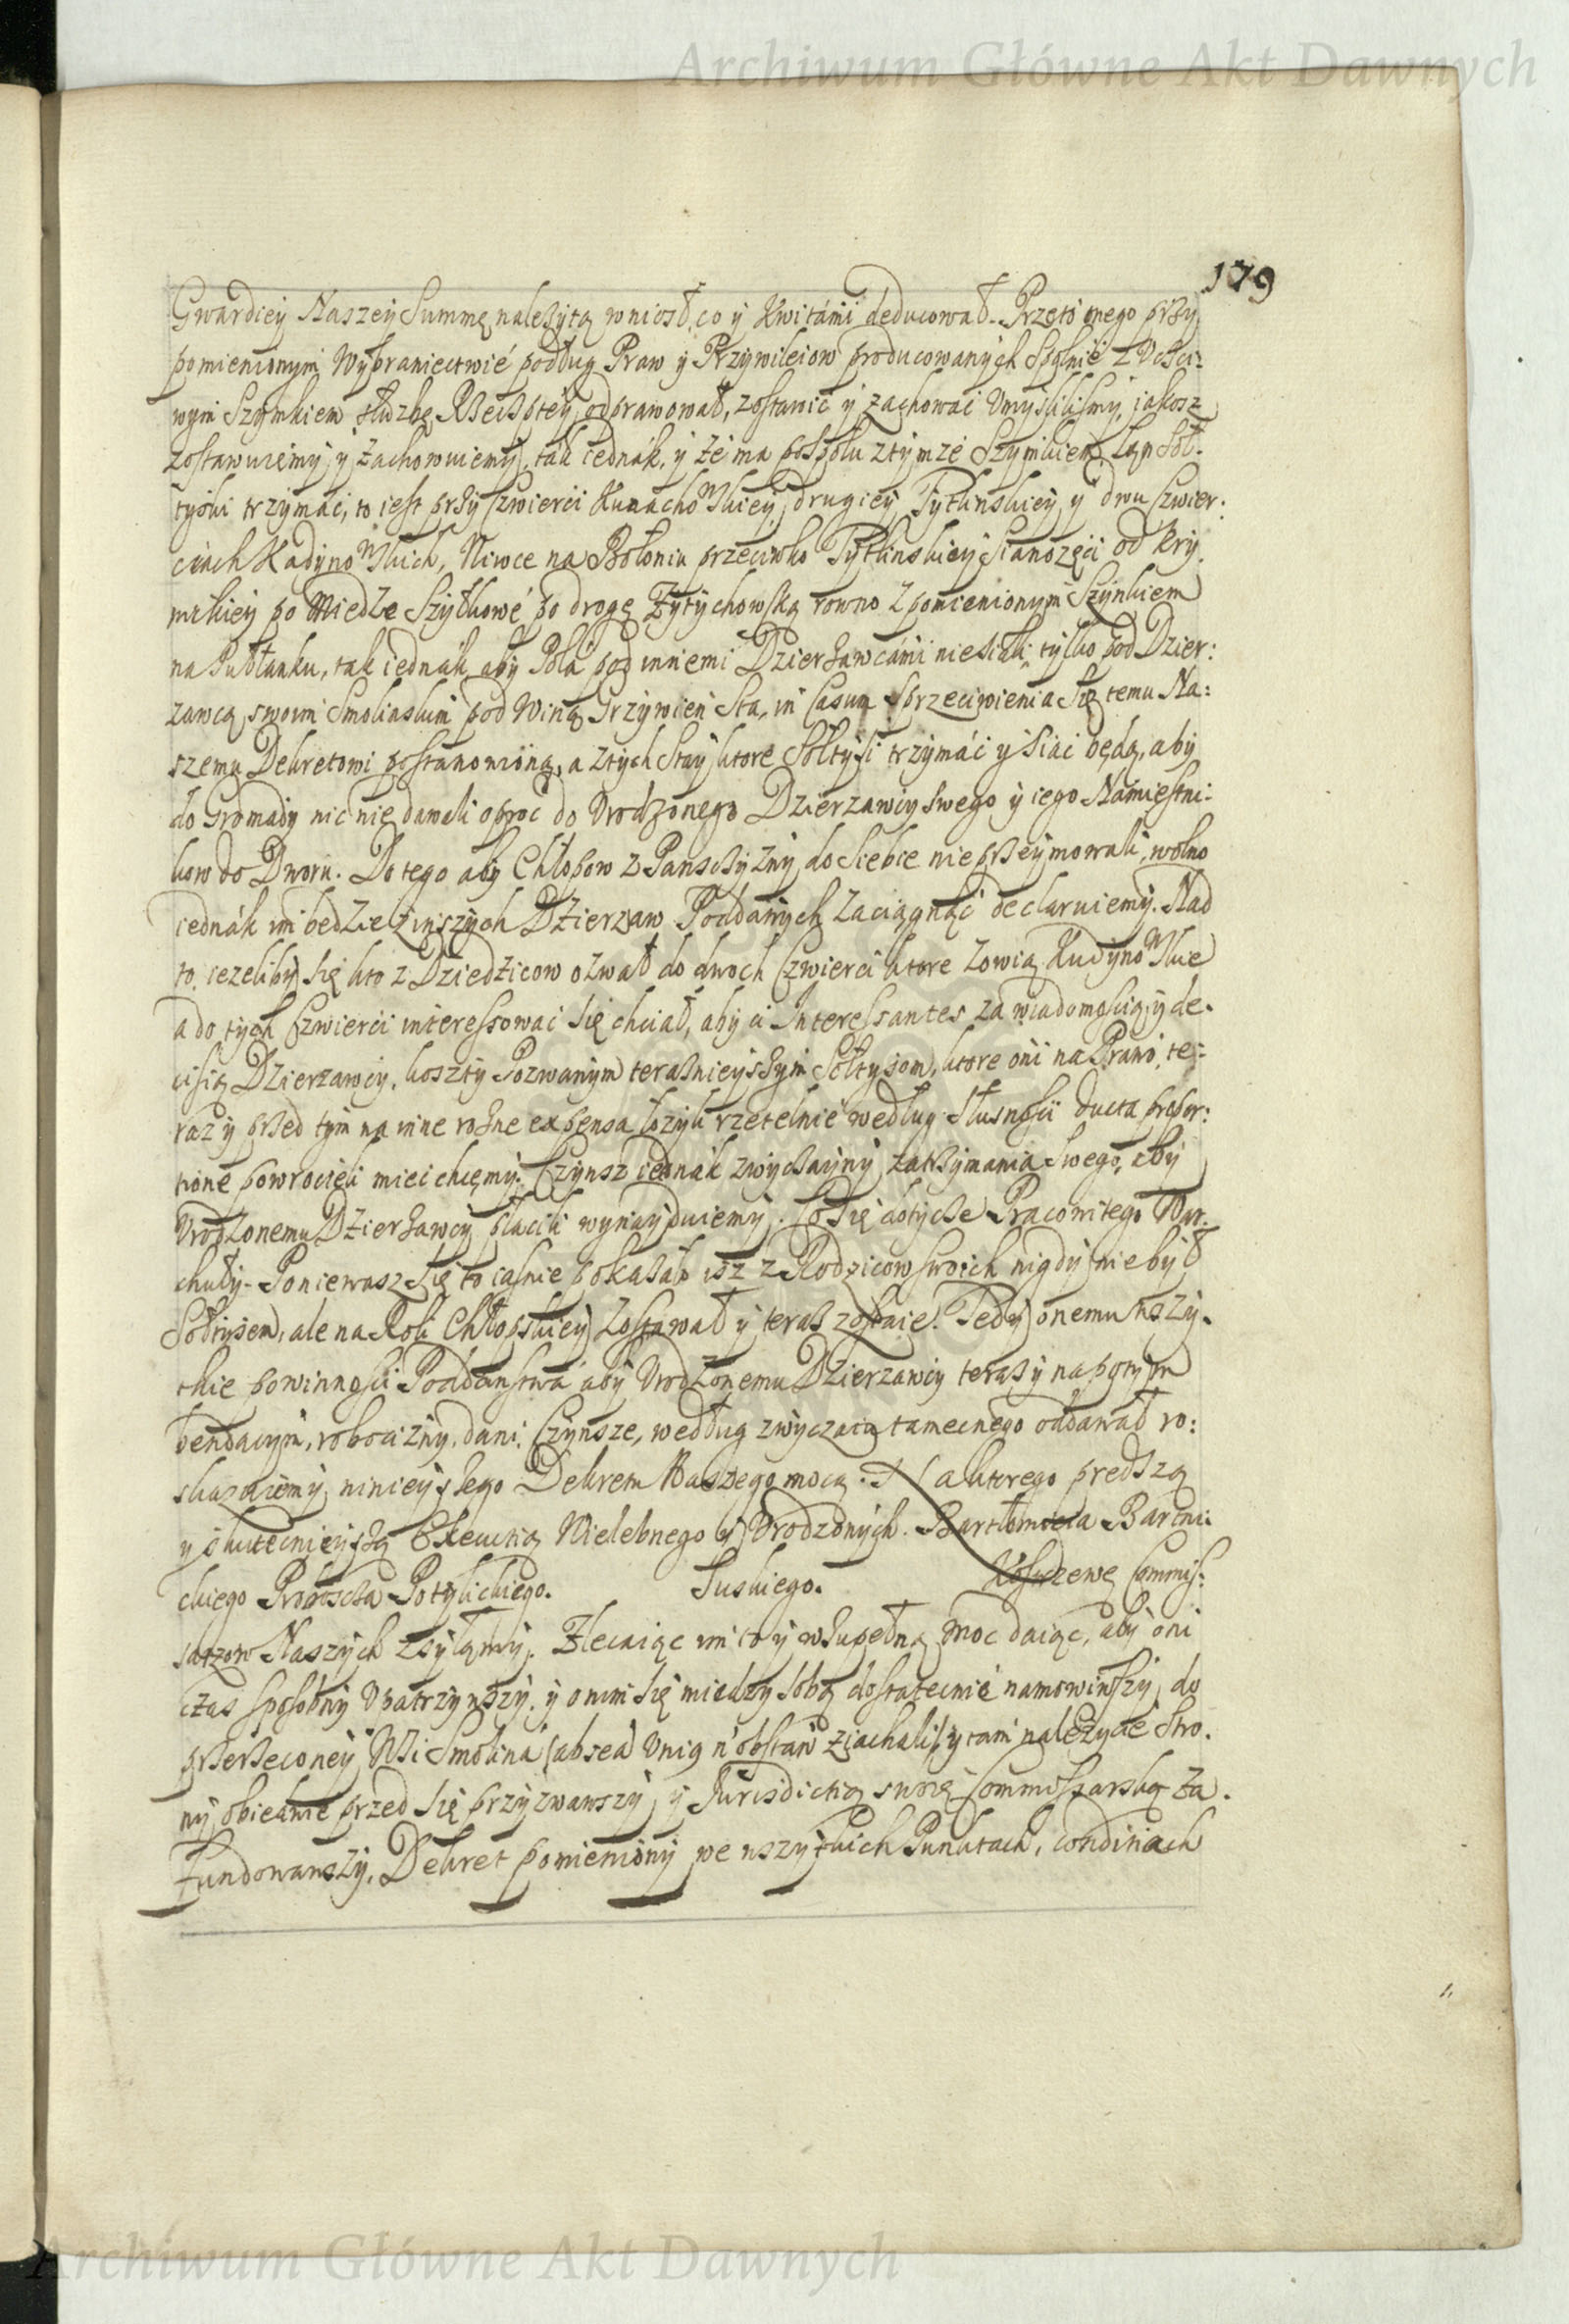 Archiwum Główne Akt Dawnych
179
Gwardiey Naszey Summę należytą wniosł, co y Kwitámi deducował. Przeto onego przy
pomienionym Wybraniectwie podług Praw y Przywileiow producowanych Spolnie z Ucżci:
wym Szymkiem służbę Rzeczptey odprawował, zostawić y zachować umyśliliśmy, iakosz
zostawuięmy y zachowuiemy, tak iednák, y że ma pospołu z tymże Szymkiem Łan Soł-
tyski trzymáć, to iest przy Czwierći Kunachowskiey, drugiey Tytkinskiey y dwu Czwier:
ciach Kadynowskich, Niwce na Błoniu przeciwko Tytkinskiey Sianozęći od Kry.
nickiey po Miedze Szytkowe po drogę Żytychowską rowno z pomienionym Szymkiem
na Pułłanku, tak iednák aby Pola pod innemi Dzierżawcámi nie siali tylko pod Dzier:
żawcą swoim Smolinskim pod Winą Grzywien Sta, in Casum Sprzeciwienia Się temu Na:
szemu Dekretowi postanowioną, a z tych Stay ktore Sołtysi trzymáć y siać będą, aby
do Gromady nic nie dawali oproc do Urodzonego Dzierzawcy swego y iego Namiestni-
kow do Dworu. Do tego aby Chłopow z Panscżyzny do siebie nie przeymowali, wolno
iednák im będzie z inszych Dzierzaw Poddanych zaciągnąć declaruiemy. Nad
to, iezeliby się kto z Dziedzicow ozwał do dwoch Czwierci ktore zowią Kudynowskie
a do tych Czwierći interessować się chciał, aby ci Interessantes za wiadomością y de-
cisią Dzierzawcy, koszty Pozwanym terasznieyszym Sołtysom, ktore oni na Prawo, te:
raz y przed tym na inne rożne expensa łożyli rzetelnie według Słusnośći ducta propor:
tione powrocieli mieć chcęmy. Czynsz iednák zwyczayny z trzymania swego, aby
Urodzonemu Dzierżawcy płacili wynayduiemy. Co się dotycże Pracowitego War-
chuły. Poniewasz się to iasnie pokazało isz z Rodzicow swoich nigdy nie był
Sołtysem, ale na Roli Chłopskiey zostawał y teraz zostaie. Tedy onemu wszy-
tkie powinnośći Poddanstwa aby Urodzonemu Dzierzawcy teraz y na potym
bendącym, robocizny, dani, Czynsze, według zwyczaiu tamecnego oddawał ro:
skazuiemy, ninieyszego Dekretu Naszego mocą. Dla ktorego prędszą
y skutecnieyszą Exekucią Wielebnego y Urodzonych. Bartłomieia Bartni:
ckiego Proboscża Potylickiego. Suskiego. Koszewę Commis:
sarzow Naszych zsyłamy. Zlecaiąc im to y w zupełną moc daiąc, aby oni
czas sposobny upatrzywszy, y o nim się miedzy sobą dostatecnie namowiwszy, do
przerzeconey Wsi Smolina (absentia unius non obstante) ziachali, y tam należycie Stro-
ny obiedwie przed się przyzwawszy, y Jurisdictią swoię Commissarską za-
fundowawszy, Dekret pomieniony we wszytkich Punktach, conditiach
Archiwum Główne Akt Dawnych